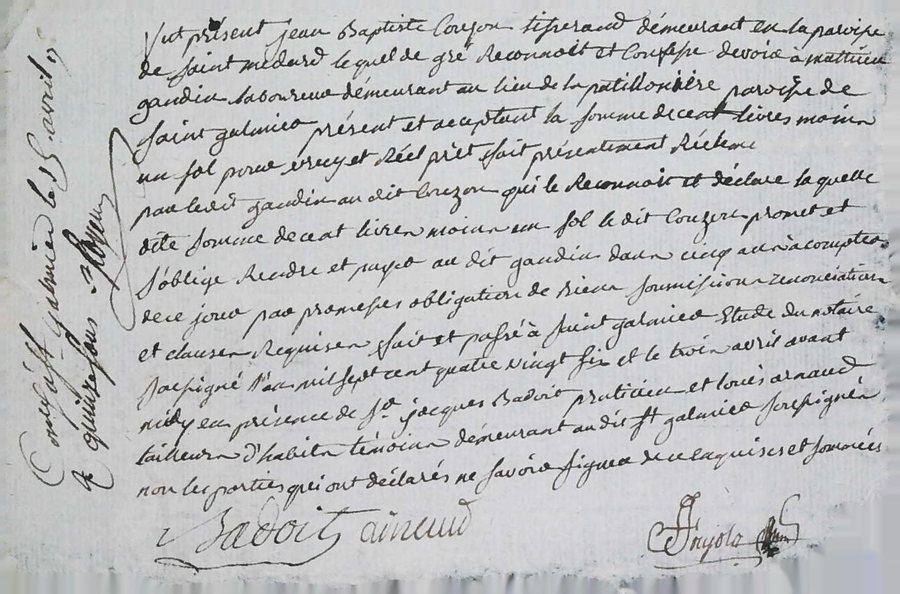 Vut présent jean Baptiste Couzon tisserand démeurant en la paroisse
de saint medard lequel de gré Reconnoit et Confesse devoir à mathieu
gaudin laboureur démeurant au lieu de la patillonière paroisse de
saint galmier présent et acceptant la somme de cent livres moins
un sol pour vray et Réel prêt fait présentement Réellemt
par ledit gaudin au dit Couzon qui le Reconnoit et déclare laquelle
dite somme de cent livres moins un sol le dit Couzon promet et
s'oblige Rendre et payer au dit gaudin dans cinq ans à compter
de ce jour par promesses obligation de biens soumissions renonciations
et clauses Requises fait et passé à saint galmier Etude du notaire
soussigné l'an mil sept cent quatre vingt six et le trois avril avant
midy en présence de Sr jacques Badoit praticien et louis arnaud
tailleurs d'habits témoins démeurant audit St galmier soussignés
non les parties qui ont déclarés ne savoir signer de ce enquises et sommées
Badoit arnaud
Conllé à St galmier le 15 avril
R quinze sous